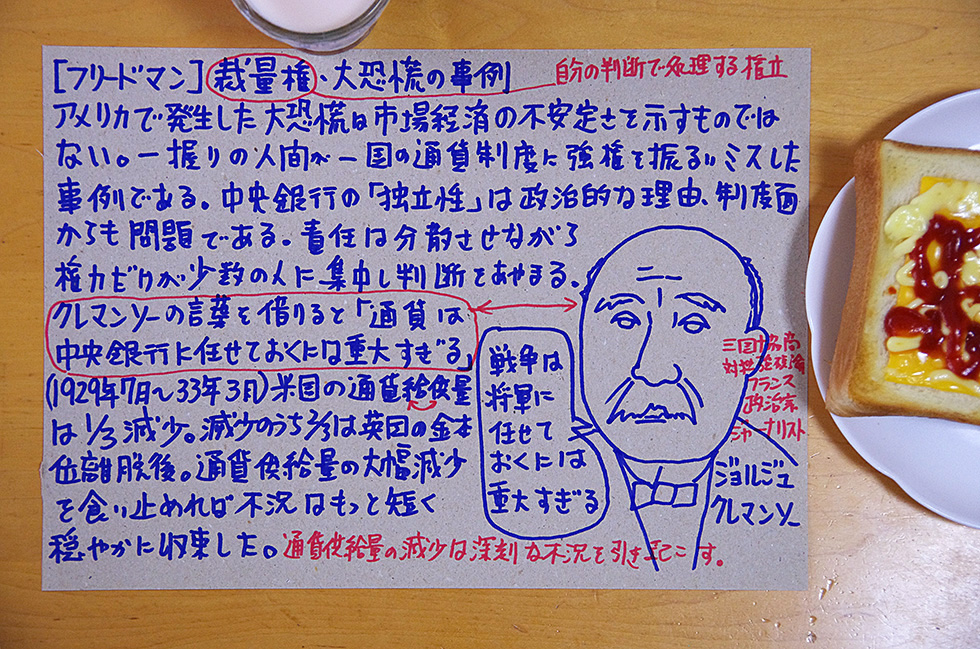 [フリードマン] 裁量権・大恐慌の事例
自分の判断で処理する権立
アメリカで発生した大恐慌は市場経済の不安定さを示すものでは
ない。一握りの人間が一国の通貨制度に強権を振るいミスした
事例である。中央銀行の「独立性」は政治的な理由、制度面
からも問題である。責任は分散させながら
権力だけが少数の人に集中し判断をあやまる。
クレマンソーの言葉を借りると「通貨は
中央銀行に任せておくには重大すぎる」
(1929年7月〜33年3月)米国の通貨給供量
は1/3減少。減少のうち2/3は英国の金本
位離脱後。通貨供給量の大幅減少
を食い止めれば不況はもっと短く
穏やかに収束した。
通貨供給量の減少は深刻な不況を引き起こす。
戦争は
将軍に
任せて
おくには
重大すぎる
三国協商
フランス
政治家
ジャーナリスト
ジョルジュ
クレマンソー